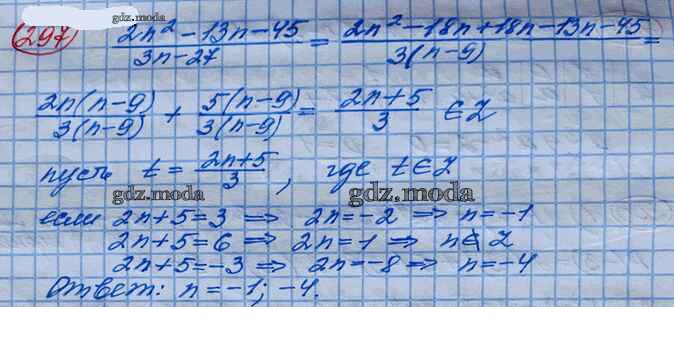 gdz.moda
(297) (2n² - 13n - 45)/(3n - 27) = (2n² - 18n + 18n - 13n - 45)/(3(n-9)) =
2n(n-9)/3(n-9) + 5(n-9)/3(n-9) = (2n+5)/3 ∈ Z
пусть t = (2n+5)/3, где t ∈ Z
gdz.moda gdz.moda
если 2n+5=3 ⇒ 2n=-2 ⇒ n=-1
2n+5=6 ⇒ 2n=1 ⇒ n∉Z
2n+5=-3 ⇒ 2n=-8 ⇒ n=-4
Ответ: n=-1; -4.